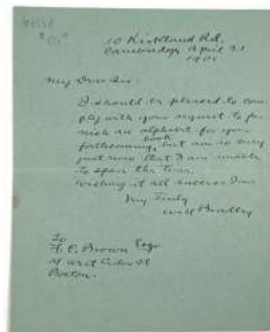 10 Kirkland Rd.
Cambridge April 21
1901
My Dear Sir:
I should be pleased to com
ply with your request to fur
nish an alphabet for your
forthcoming book, but am so busy
just now that I am unable
to spare the time.
Wishing it all success I am
Very Truly
Will Bradley
To
F. C. Brown Esqr
St
Boston.